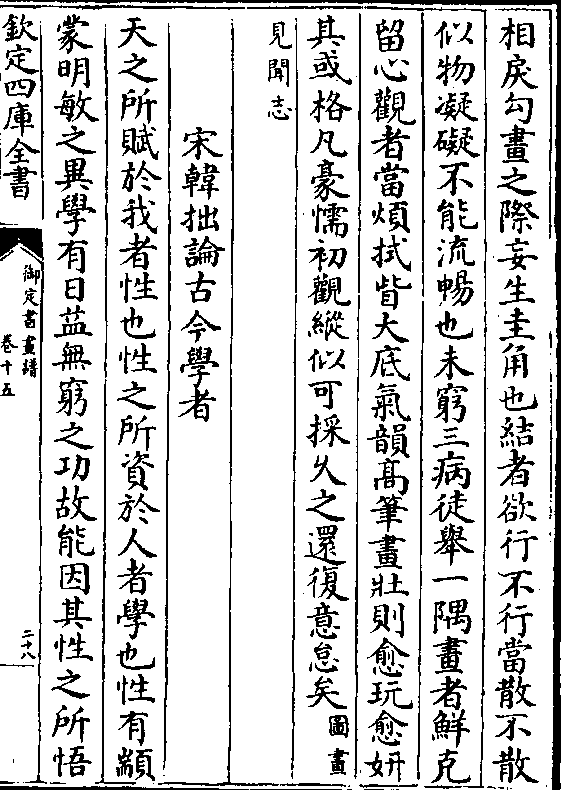 相戾勾畫之際妄生圭角也結者欲行不行當散不散
似物凝礙不能流暢也未窮三病徒舉一隅畫者鮮克
留心觀者當煩拭眥大底氣韻髙筆畫壯則愈玩愈妍
其或格凡豪懦初觀縱似可採久之還復意怠矣圖畫
見聞志
宋韓拙論古今學者
天之所賦於我者性也性之所資於人者學也性有顓
蒙明敏之異學有日益無窮之功故能因其性之所悟
欽定四庫全書
御定書畫譜
卷十五
二十八